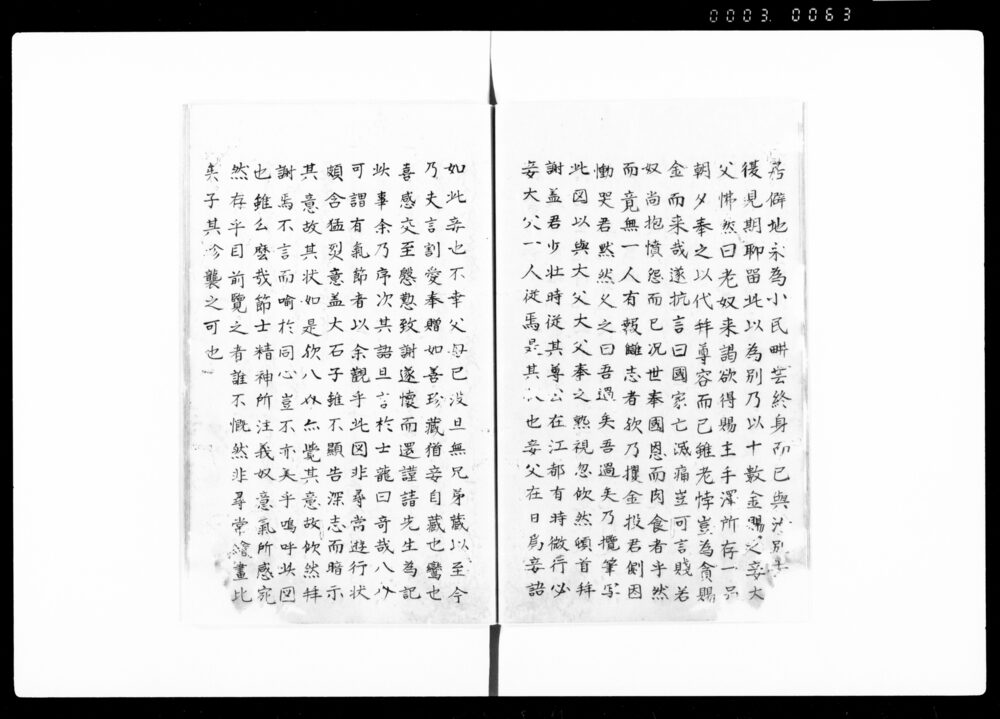 0003. 0063
居僻地永為小民畊耘終身而已與汝別
後見期聊留此以為別乃以十數金賜之妾大
父怫然曰老奴来謁欲得賜主手澤所存一品
朝夕奉之以代拜尊容而已雖老悖豈為貪賜
金而来哉遂抗言曰國家亡滅痛豈可言賤若
奴尚抱憤怨而已况世奉國恩而肉食者乎然
而竟無一人有報讎志者欤乃攫金投君側因
慟哭君黙然久之曰吾過矣吾過矣乃攬筆写
此図以與大父大父奉之熟視忽欣然頓首拜
謝盖君少壮時従其尊公在江都有時微行必
妾大父一人従焉是其八也妾父在日為妾語
如此妾也不幸父母已没且無兄弟蔵以至今
乃夫言割愛奉贈如善珍蔵猶妾自蔵也鸞也
喜感交至慇懃致謝遂懐而還謹請先生為記
此事余乃序次其語且言於士龍曰奇哉八奴
可謂有氣節者以余觀乎此図非尋常遊行状
頗含猛烈意盖大石子雖不顯告深志而暗示
其意故其状如是欤八奴亦覺其意故欣然拜
謝焉不言而喻於同心豈不亦美乎嗚呼此図
也雖么麼哉節士精神所注義奴意氣所感宛
然存乎目前覽之者誰不慨然非尋常繪畫比
矣子其珍襲之可也